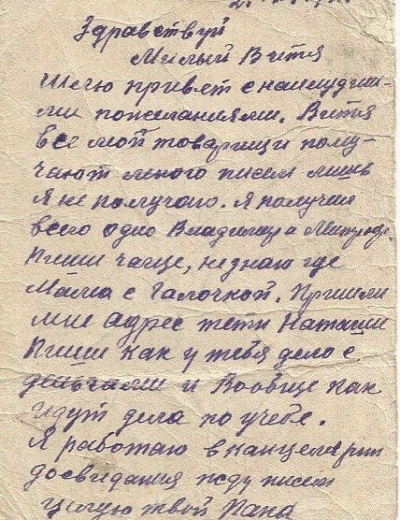 Здравствуй
Милый Витя
Шлю привет с наилудши-
ми пожеланиями. Витя
все мой товарищи полу-
чают много писем лишь
я не получаю. Я получил
всего одно Владимира
Пиши чаще, незнаю где
Мама с Галочкой. Пришли
мне адрес тети Наташи
Пиши как у тебя дело с
и вообще как
идут дела по учебе.
Я работаю в канцелярии
досвидания жду писем
целую твой Папа